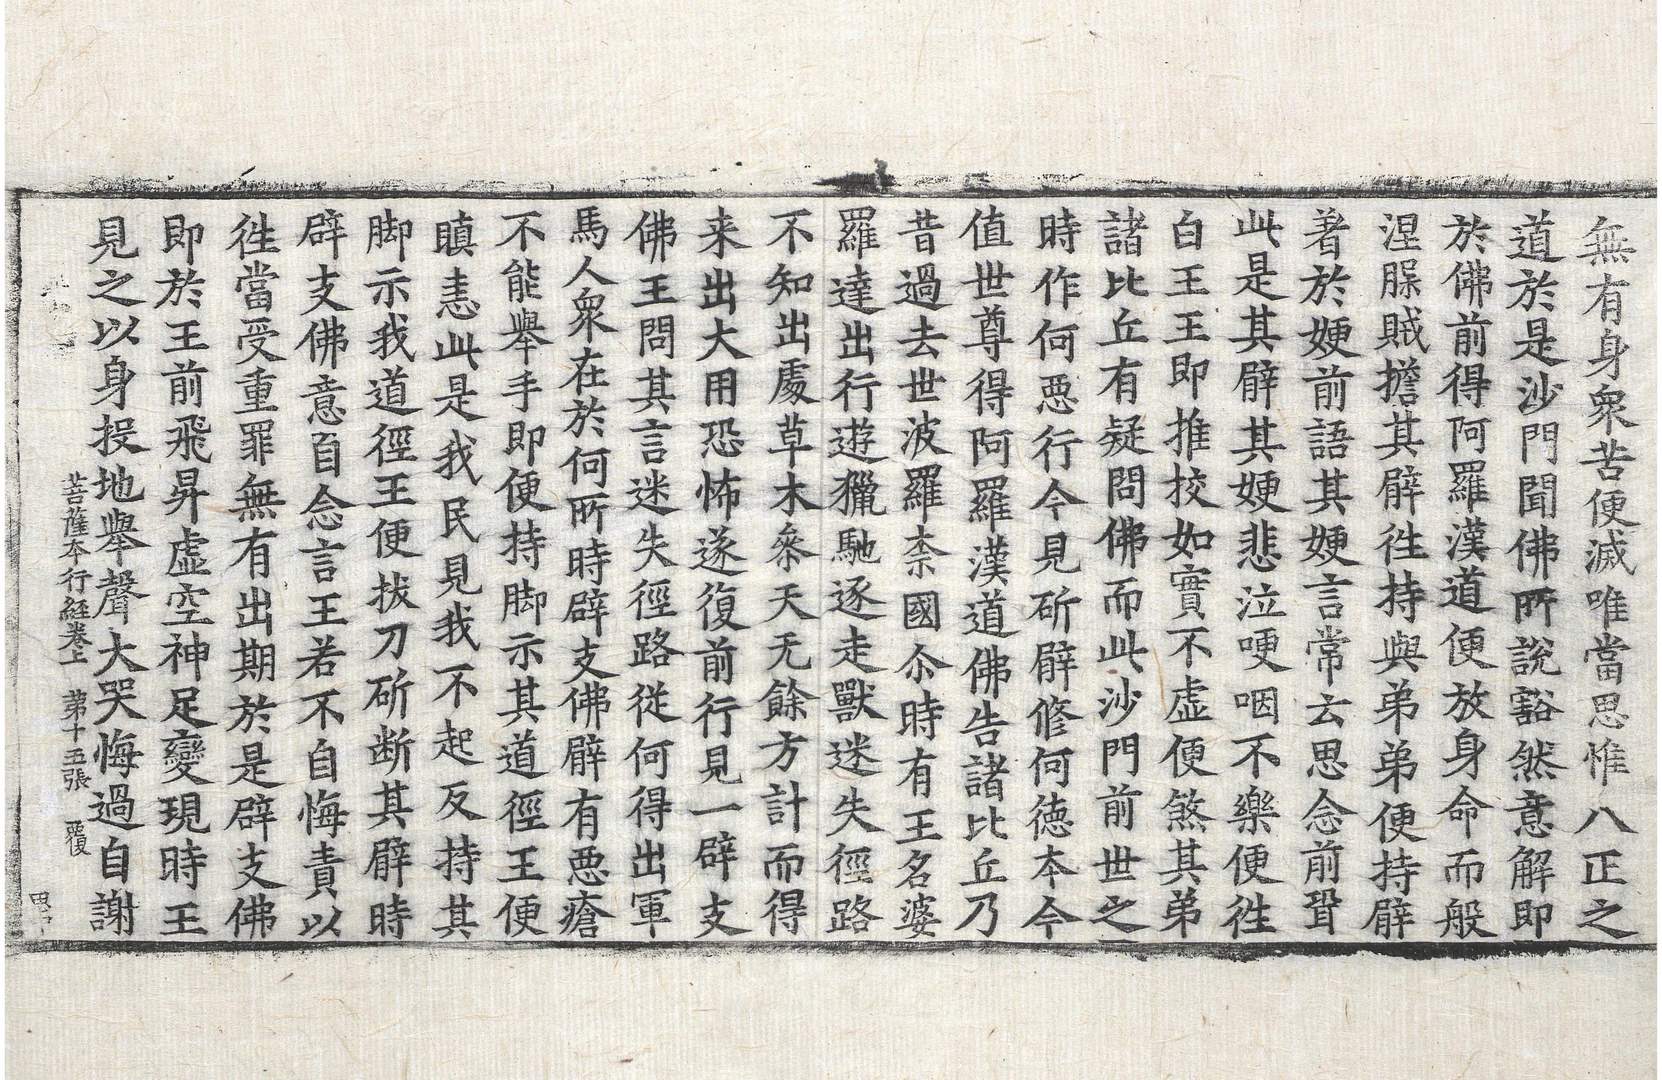 無有身衆苦便滅唯當思惟八正之
道於是沙門聞佛所說豁然意解即
於佛前得阿羅漢道便放身命而般
涅脲賊擔其臂往持與弟弟便持臂
著於㛐前語其㛐言常云思念前聟
此是其臂其㛐悲泣哽咽不樂便往
白王王即推挍如實不虛便煞其弟
諸比丘有疑問佛而此沙門前世之
時作何惡行今見斫臂修何德本今
值世尊得阿羅漢道佛告諸比丘乃
昔過去世波羅柰國尒時有王名婆
羅達出行遊獵馳逐走獸迷失徑路
不知出處草木叅天无餘方計而得
来出大用恐怖遂復前行見一辟支
佛王問其言迷失徑路從何得出軍
馬人衆在於何所時辟支佛臂有惡瘡
不能舉手即便持脚示其道徑王便
瞋恚此是我民見我不起反持其
脚示我道徑王便拔刀斫断其臂時
辟支佛意自念言王若不自悔責以
往當受重罪無有出期於是辟支佛
即於王前飛昇虛空神足變現時王
見之以身投地舉聲大哭悔過自謝
菩薩本行経卷上 第十五張 覆